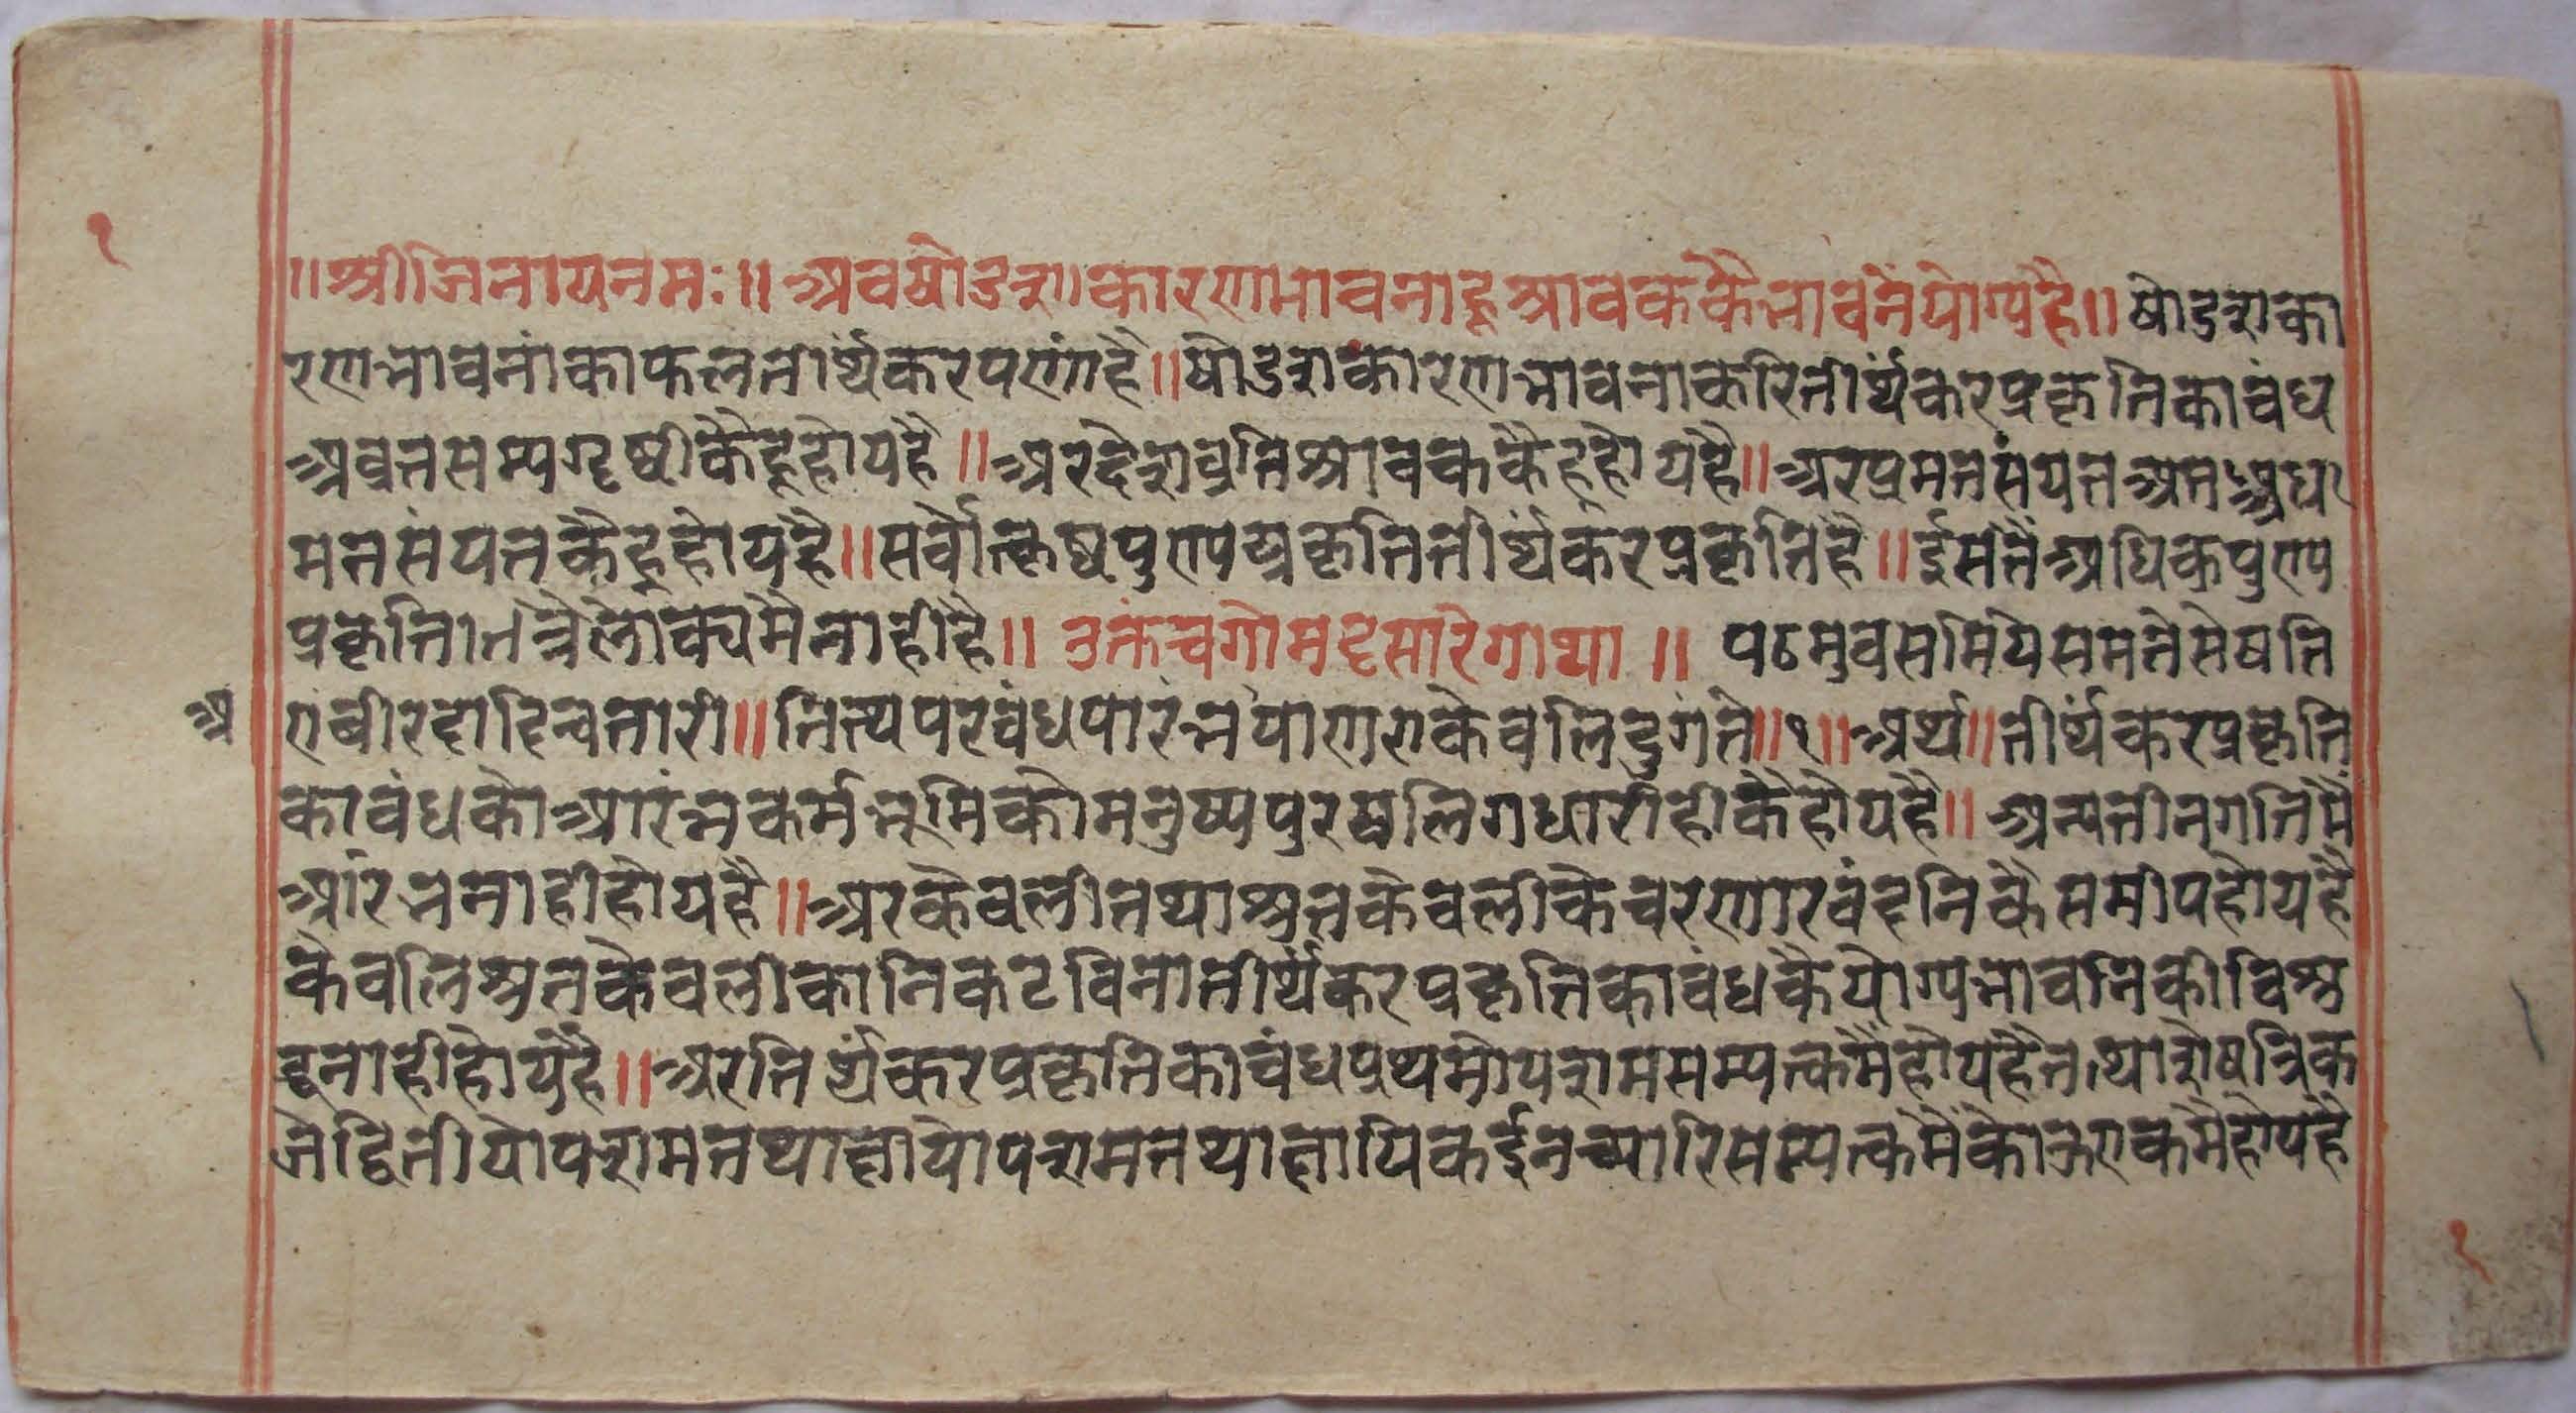 १
॥श्रीजिनायनमः॥ अवषोडश।कारणभावनाहूश्रावककैभावनेंयोग्यहै॥ षोडशका
रणभावनांकाफलतीर्थंकरपणांहै॥षोडशकारणभावनाकरितीर्थंकरप्रकृतिकाबंध
अव्रतसम्यग्दृष्टीकैहूहोयहै॥अरदेशव्रतिश्रावककैहूहोयहै॥अरप्रमतसंयत
मतसंयतकैहूहोयहै॥सर्वोत्कृष्टपुण्यप्रकृतितीर्थंकरप्रकृतिहै॥ईसतैंअधिकपुण्य
प्रकृतित्रैलोक्यमैनाहीहै॥ उक्तंचगोमट्टसारेगाथा॥ पढमुवसमियेसमतेसेषति
अ
एबीरदादिचत्तारी॥तित्यपरबंधपारंभयाणरुकेवलिदुगंते॥१॥अर्थ॥तीर्थंकरप्रकृति
काबंधकोआरंभकर्मभूमिकोमनुष्यपुरषलिंगधारीहीकैहोयहै॥अन्यतीनगतिमैं
आरंभनाहीहोयहै॥अरकेवलीतथाश्रुतकेवलीकेचरणारबंदनिकैसमीपहोयहै
केवलिश्रुतकेवलीकानिकटविनातीर्थंकरप्रकृतिकाबंधकैयोग्यभावनिकीविशु
द्धनाहीहोयहै॥अरतिर्थंकरप्रकृतिकाबंधप्रथमोपशमसम्यत्कमैंहोयहैतथाशेषत्रिक
जेद्वितीयोपशमतथाक्षायोपशमतथाक्षायिकईनच्यारिसम्यत्कमैंकोऊएकमैहोयहै
१